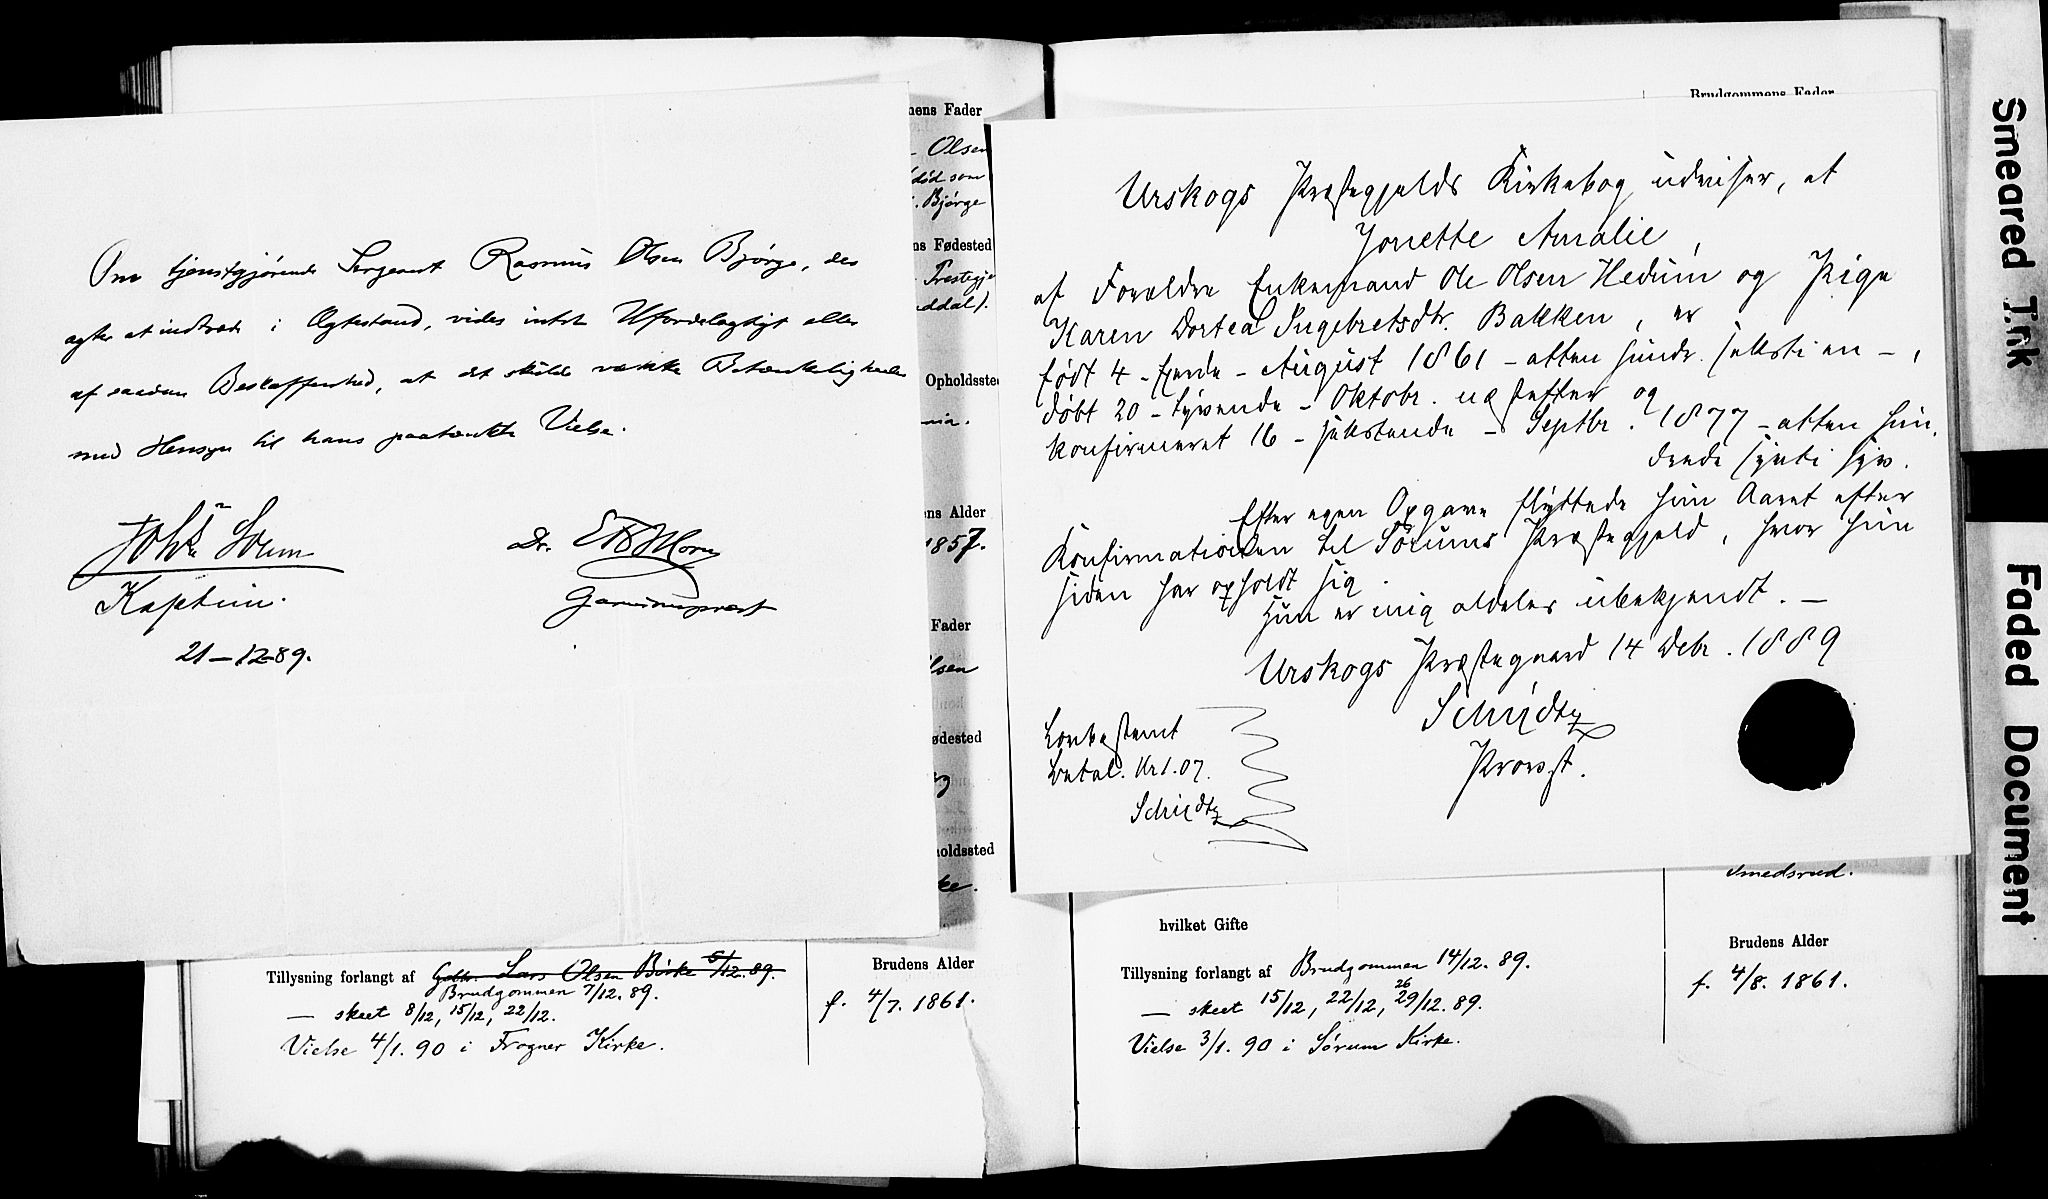 Om tjenstgjørende Sergeant Rasmus Olsen Bjørge, der
agter at indtræde i Ægtestand, vides intet Ufordelagtigt eller
af saadan Beskaffenhed, at det skulde vække Betænkeligheder
med Hensyn til hans paatænkte Vielse.
Kaptein.
21-12-89.
Dr.
Garnisonsprest
mens Fader
Olsen
død som
Bjørge
ns Fødested
Præstegje
ddal).
Opholdssted
nia.
ns Alder
1857.
Fader
lsen
ødested
holdssted
ke.
Tillysning forlangt af Gdbr. Lars Olsen Børke 6/12.89.
Brudgommen 7/12.89.
— skeet 8/12, 15/12, 22/12.
Vielse 4/1.90 i Frogner Kirke.
Brudens Alder
f. 4/7.1861.
Brudgommens Fader
Urskogs Præstegjelds Kirkebog udviser, at
Jonette Amalie,
af Forældre Enkemand Ole Olsen Hedum og Pige
Karen Dortea Ingebretsdtr. Bakken, er
født 4 - fjerde - August 1861 - atten hundr. sексti en -,
døbt 20 - tyvende - Oktobr. næstefter og
konfirmeret 16 - sekstende - Septbr. 1877 - atten hun,
drede sytti syv.
Efter egen Opgave flyttede hun Aaret efter
Konfirmationen til Sørums Præstegjeld, hvor hun
siden har opholdt sig.
Hun er mig aldeles ubekjendt. —
Urskogs Præstegaard 14 Debr. 1889
Schijdtz
Provst.
Lovbestemt
betal. Kr 1.07.
Schijdtz
Smedsrud.
hvilket Gifte
Tillysning forlangt af Brudgommen 14/12.89.
— skeet 15/12, 22/12, 26 29/12.89.
Vielse 3/1.90 i Sørum Kirke.
Brudens Alder
f. 4/8.1861.
Smeared Trk
Faded Document